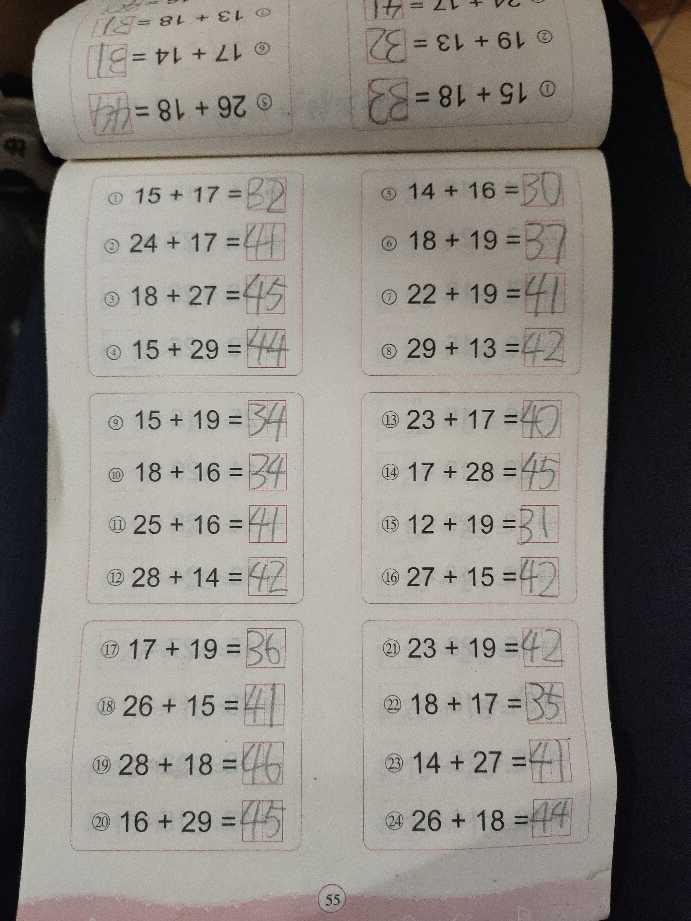 24 + 17 = 41
② 19 + 13 = 32
① 15 + 18 = 33
13 + 18 = 31
⑥ 17 + 14 = 31
⑤ 26 + 18 = 44
① 15 + 17 = 32
② 24 + 17 = 41
③ 18 + 27 = 45
④ 15 + 29 = 44
⑤ 14 + 16 = 30
⑥ 18 + 19 = 37
⑦ 22 + 19 = 41
⑧ 29 + 13 = 42
⑨ 15 + 19 = 34
⑩ 18 + 16 = 34
⑪ 25 + 16 = 41
⑫ 28 + 14 = 42
⑬ 23 + 17 = 40
⑭ 17 + 28 = 45
⑮ 12 + 19 = 31
⑯ 27 + 15 = 42
⑰ 17 + 19 = 36
⑱ 26 + 15 = 41
⑲ 28 + 18 = 46
⑳ 16 + 29 = 45
㉑ 23 + 19 = 42
㉒ 18 + 17 = 35
㉓ 14 + 27 = 41
㉔ 26 + 18 = 44
55